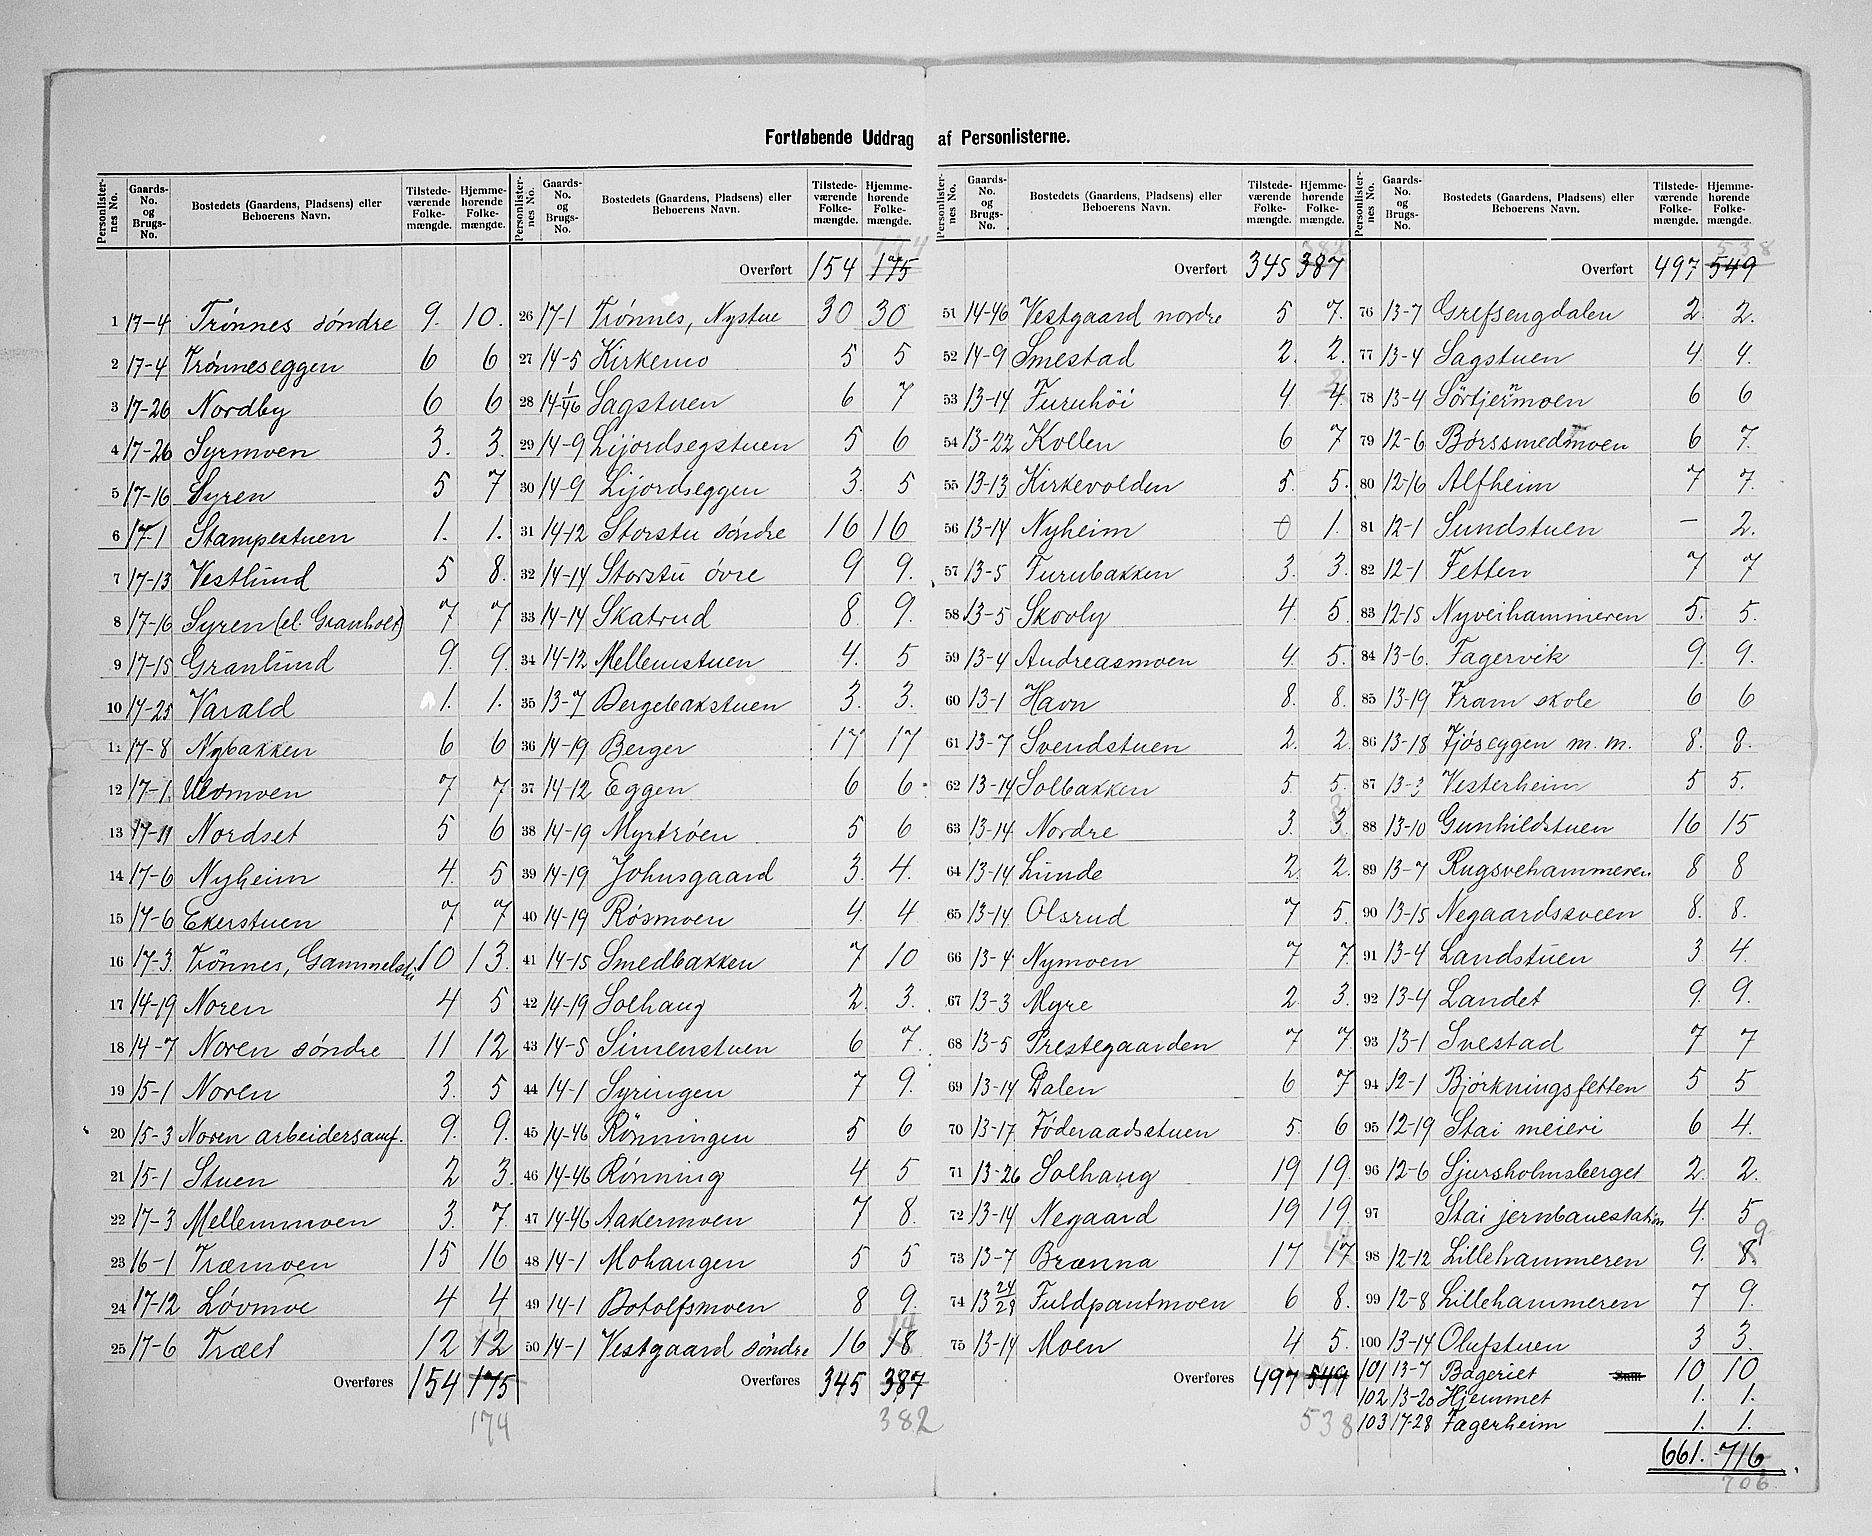 Fortløbende Uddrag af Personlisterne.
Personlisternes No. Gaards-No. og Brugs-No. Bostedets (Gaardens, Pladsens) eller Beboerens Navn. Tilstedeværende Folkemængde. Hjemmehørende Folkemængde.
1 17-4 Trønnes søndre 9. 10.
2 17-4 Trønneseggen 6 6
3 17-26 Nordby 6 6
4 17-26 Syrmoen 3. 3.
5 17-16 Syren 5 7
6 17-1 Stampestuen 1. 1.
7 17-13 Vestlund 5 8.
8 17-16 Syren (el. Granholt) 7 7
9 17-15 Granlund 9. 9.
10 17-25 Varald 1. 1.
11 17-8 Nybakken 6 6
12 17-1. Ulvmoen 7 7
13 17-11 Nordset 5 6
14 17-6 Nyheim 4. 5
15 17-6 Ekerstuen 7 7
16 17-3. Trönnes, Gammelstu 10 13.
17 14-19 Noren 4 5
18 14-7 Noren søndre 11 12
19 15-1 Noren 3. 5
20 15-3 Noren arbeidersamf. 9. 9.
21 15-1 Stuen 2 3.
22 17-3 Mellemmoen 3. 7.
23 16-1 Træmoen 15 16
24 17-12 Løvmoe 4 4
25 17-6 Træet 12 12
Overføres 154 175
174
Personlisternes No. Gaards-No. og Brugs-No. Bostedets (Gaardens, Pladsens) eller Beboerens Navn. Tilstedeværende Folkemængde. Hjemmehørende Folkemængde.
174
Overført 154 175
26 17-1 Trønnes, Nystue 30 30
27 14-5 Kirkemo 5 5
28 14-1/16 Sagstuen 6 7
29 14-9 Lijordsegstuen 5 6
30 14-9 Lijordseggen 3. 5
31 14-12 Storstu søndre 16 16
32 14-14 Storstu øvre 9 9.
33 14-14 Skatrud 8. 9.
34 14-12 Mellemstuen 4. 5
35 13-7 Bergebakstuen 3. 3.
36 14-19 Berger 17 17
37 14-12 Eggen 6 6
38 14-19 Myrtrøen 5 6
39 14-19 Johnsgaard 3. 4.
40 14-19 Røsmoen 4. 4
41 14-15 Smedbakken 7 10
42 14-19 Solhaug 2. 3.
43 14-5 Simenstuen 6 7.
44 14-1 Syringen 7 9.
45 14-46 Rønningen 5 6
46 14-46 Rønning 4 5
47 14-46 Aakermoen 7 8.
48 14-1 Mohaugen 5 5
49 14-1 Botolfsmoen 8 9.
50 14-1 Vestgaard søndre 16 18
Overføres 345 387
382
Personlisternes No. Gaards-No. og Brugs-No. Bostedets (Gaardens, Pladsens) eller Beboerens Navn. Tilstedeværende Folkemængde. Hjemmehørende Folkemængde.
382
Overført 345 387
51 14-46 Vestgaard nordre 5 7.
52 14-9 Smestad 2. 2.
53 13-14 Furuhöi 4. 4.
54 13-22 Kollen 6 7
55 13-13 Kirkevolden 5. 5.
56 13-14 Nyheim 0 1.
57 13-5 Furubakken 3. 3.
58 13-5 Skovly 4. 5.
59 13-4 Andreasmoen 4. 5.
60 13-1 Havn 8. 8.
61 13-7 Svendstuen 2. 2.
62 13-14 Solbakken 5. 5.
63 13-14. Nordre 3. 3
64 13-14 Lunde 2. 2.
65 13-14. Olsrud 7 5
66 13-4 Nymoen 7 7.
67 13-3 Myre 2 3.
68 13-5 Prestegaarden 7 7
69 13-14 Dalen 6 7
70 13-17 Föderaadsstuen 5. 6
71 13-26 Solhaug 19 19.
72 13-14 Negaard 19 19.
73 13-7 Brænna 17 17
74 13 24/29 Fuldpantmoen 6 8.
75 13-14 Moen 4 5.
Overføres 497 549
538
Personlisternes No. Gaards-No. og Brugs-No. Bostedets (Gaardens, Pladsens) eller Beboerens Navn. Tilstedeværende Folkemængde. Hjemmehørende Folkemængde.
538
Overført 497 549
76 13-7 Grefsengdalen 2. 2.
77 13-4 Sagstuen 4. 4.
78 13-4 Sörtjernmoen 6 6
79 12-6 Børssmedmoen 6 7.
80 12-16 Alfheim 7 7.
81 12-1 Sundstuen – 2.
82 12-1 Fetten 7 7
83 12-15 Nyveihammeren 5. 5.
84 13-6. Fagervik 9. 9.
85 13-19 Fram skole 6 6
86 13-18 Tjøseggen m. m. 8. 8.
87 13-3 Vesterheim 5 5.
88 13-10 Gunhildstuen 16 15
89 13-7 Rugsvehammeren 8 8
90 13-15 Negaardssveen 8. 8.
91 13-4 Landstuen 3 4.
92 13-4 Landet 9. 9.
93 13-1 Svestad 7 7
94 12-1 Bjørkningsfetten 5 5
95 12-19 Stai meieri 6 4.
96 12-6 Sjursholmsberget 2. 2.
97 Stai jernbanestation 4. 5
98 12-12 Lillehammeren 9. 8. 9
99 12-8 Lillehammeren 7 9.
100 13-14 Olufstuen 3 3.
101 13-7 Bageriet Sum 10 10
102 13-20 Hjemmet 1. 1.
103 17-28 Fagerheim 1. 1.
661. 716
706